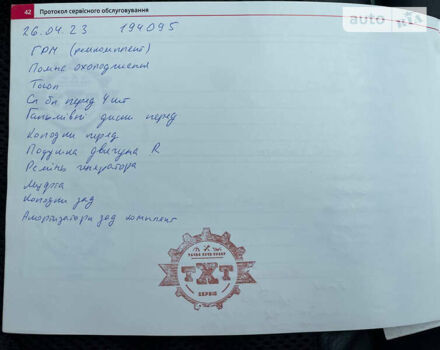 42 Протокол сервісного обслуговування
26.04.23 194095
ГРМ (ремкомплект)
Помпа охолодження
Тосол
Сп бл перед 4 шт
Гальмівні диски перед
Колодки перед
Подушка двигуна R
Ремінь генератора
Муфта
Колодки зад
Амортизатори зад комплект
ТХТ
СЕРВІС
auto